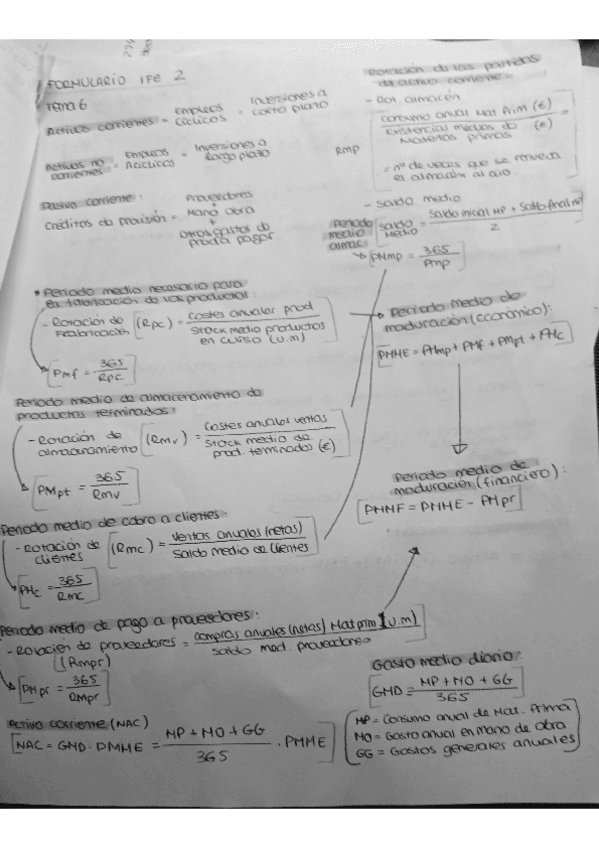 FORMULARIO IFE 2
TEMA 6
Activos corrientes = Empleos Cíclicos = Inversiones a corto plazo
Activos no corrientes = Empleos Acíclicos = Inversiones a largo plazo
Pasivo corriente:
Créditos de provisión = Proveedores + Mano obra + Otros gastos de prod a pagar
* Periodo medio necesario para
la fabricación de los productos:
- Rotación de Fabricación (Rpc) = Costes anuales prod / Stock medio productos en curso (u.m)
PMf = 365 / Rpc
Periodo medio de almacenamiento de
productos terminados:
- Rotación de almacenamiento (Rmv) = Costes anuales ventas / Stock medio de prod. terminados (€)
PMpt = 365 / Rmv
Periodo medio de cobro a clientes:
- Rotación de clientes (Rmc) = Ventas anuales (netas) / Saldo medio de clientes
PMc = 365 / Rmc
Periodo medio de pago a proveedores:
- Rotación de proveedores = compras anuales (netas) Mat prim (u.m) / Saldo med. proveedores
(Rmpr)
PMpr = 365 / RMpr
Activo corriente (NAC)
NAC = GMD · PMME = MP + MO + GG / 365 · PMME
Rotación de las partidas
de activo corriente:
- Rot almacén
Rmp
consumo anual Mat Prim (€) / Existencias medias de Materias primas (€) =
= nº de veces que se renueva
el almacén al año.
- Saldo medio
Periodo medio almac.
Saldo Medio = Saldo inicial MP + Saldo final MP / 2
PMmp = 365 / Rmp
Periodo medio de
maduración (económico):
PMME = PMmp + PMf + PMpt + PMc
Periodo medio de
maduración (financiero):
PMMF = PMME - PMpr
Gasto medio diario:
GMD = MP + MO + GG / 365
MP = Consumo anual de Mat. Prima
MO = Gasto anual en mano de obra
GG = Gastos generales anuales